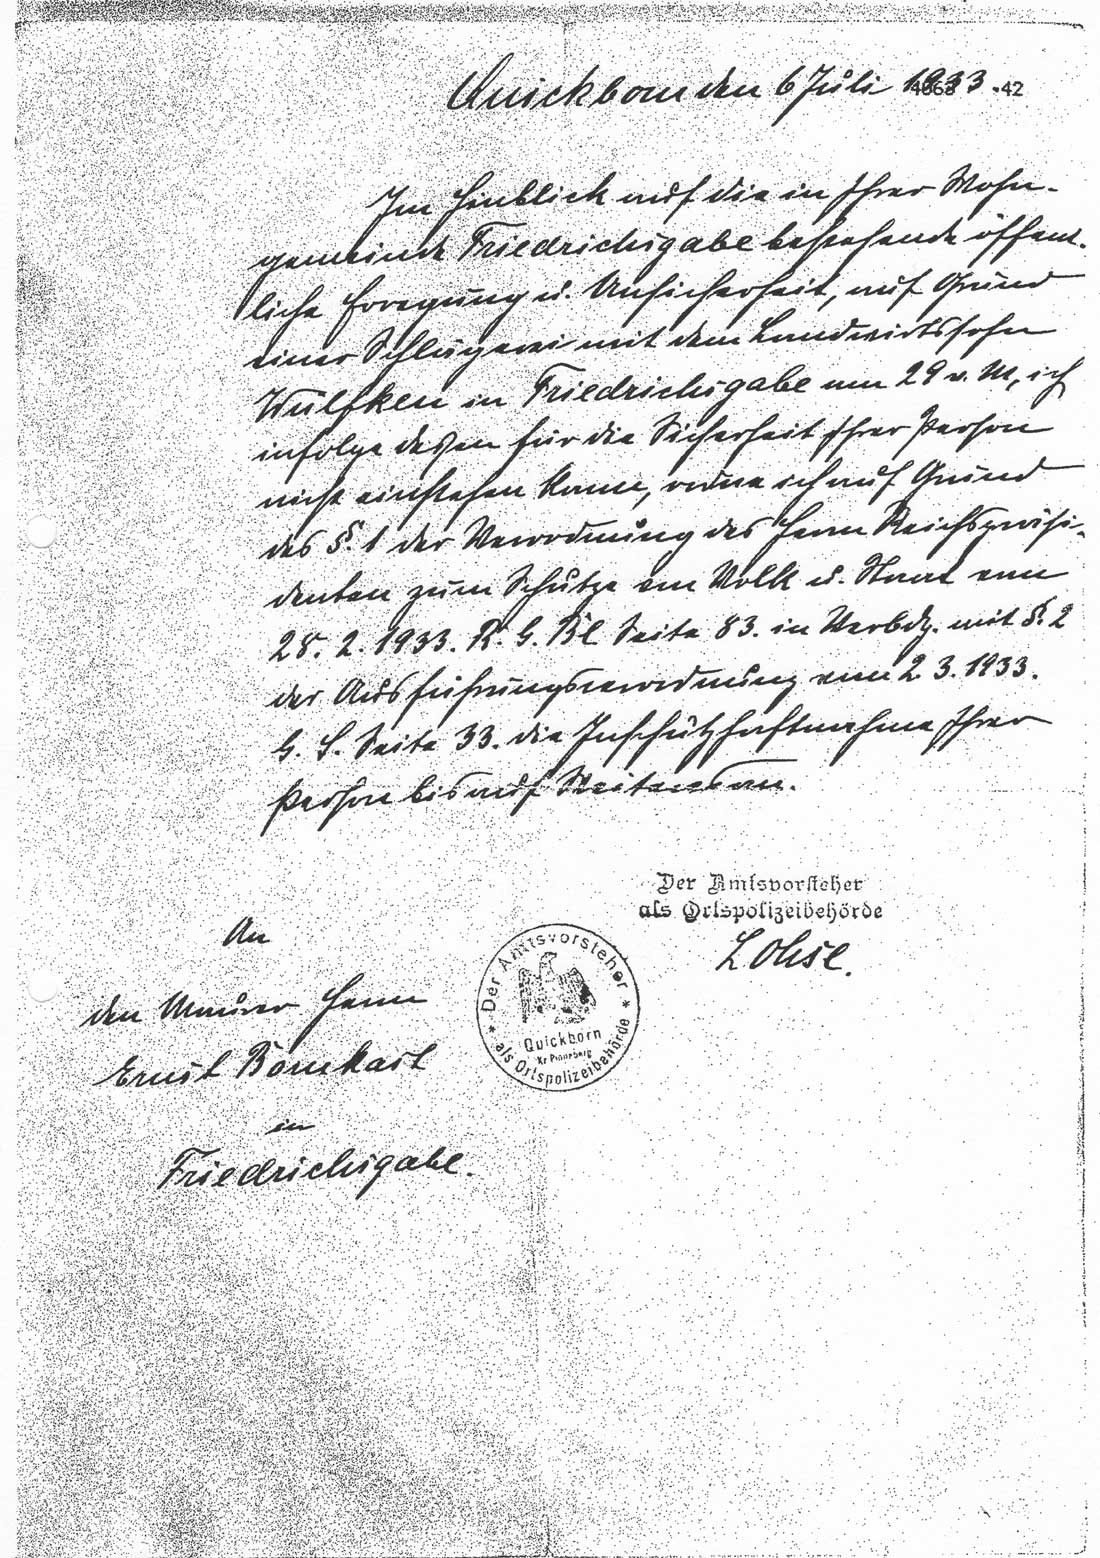 Quickborn den 6 Juli 1933.
4668 -42
Im Hinblick auf die in Ihrer Wohn-
gemeinde Friedrichsgabe bestehende öffent-
liche Erregung u. Unsicherheit, auf Grund
einer Schlägerei mit dem Landwirtssohn
Wulfken in Friedrichsgabe am 29 v. M, ich
infolge dessen für die Sicherheit Ihrer Person
nicht einstehen kann, ordne ich auf Grund
des §. 1 der Verordnung des Herrn Reichspräsi-
denten zum Schutze von Volk u. Staat vom
28. 2. 1933. R. G. Bl. Seite 83. in Verbdg. mit §. 2
der Ausführungsverordnung vom 2. 3. 1933.
G. S. Seite 33. die Inschutzhaftnahme Ihrer
Person bis auf Weiteres an.
Der Amtsvorsteher
als Ortspolizeibehörde
Lohse.
Der Amtsvorsteher
Quickborn
Kr Pinneberg
als Ortspolizeibehörde
An
den Maurer Herrn
Ernst Bornkast
in
Friedrichsgabe.